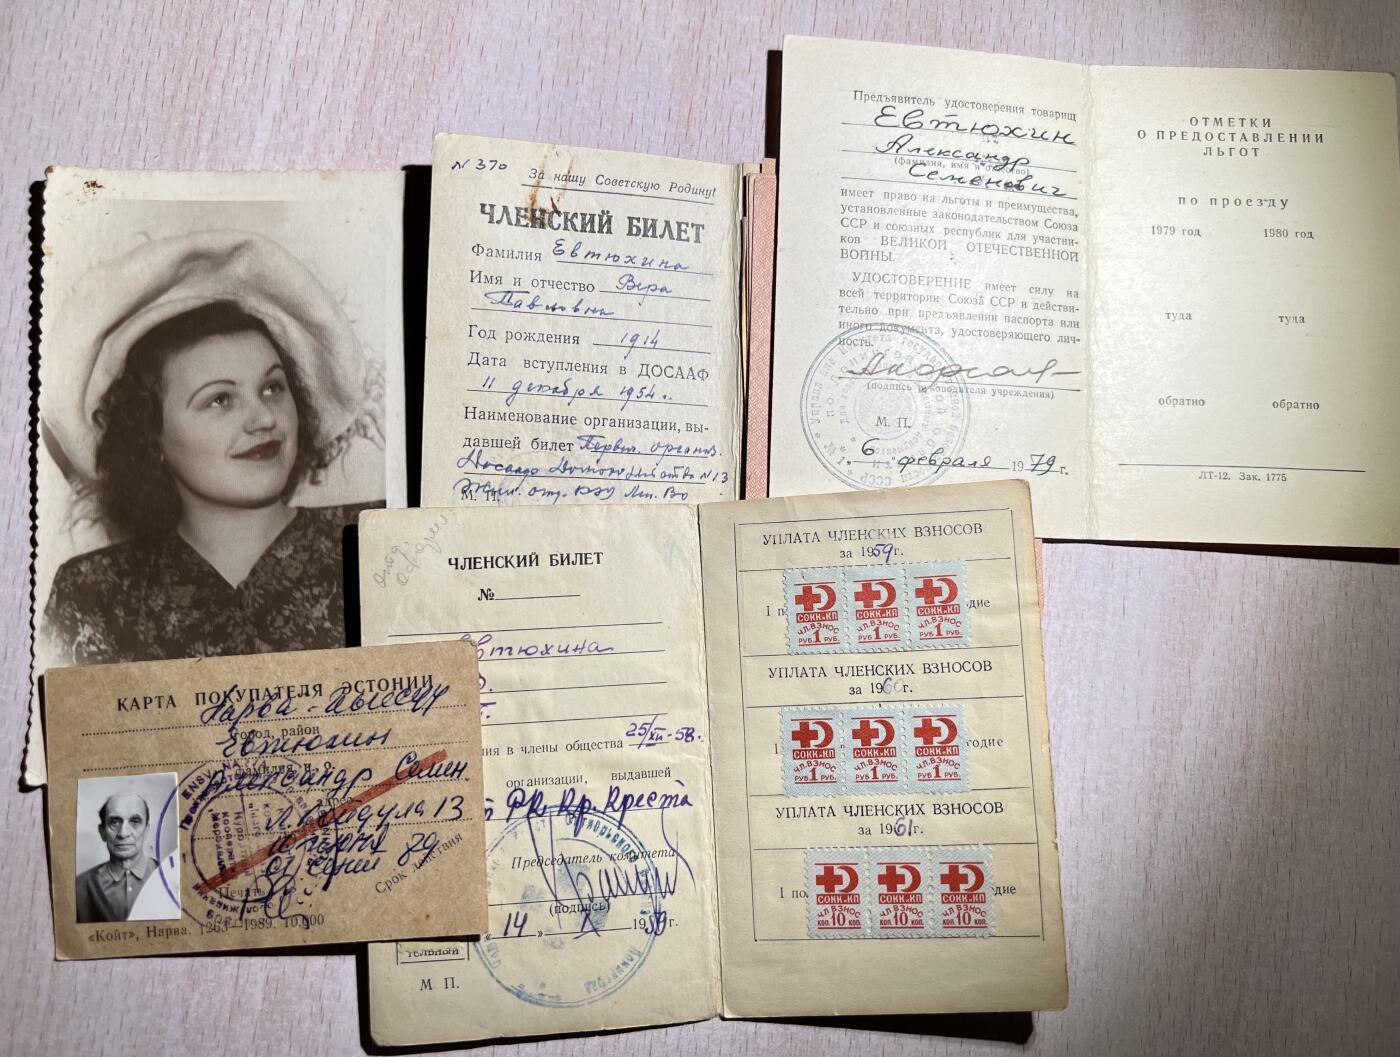 N 370
За нашу Советскую Родину!
ЧЛЕНСКИЙ БИЛЕТ
Фамилия Евтюхина
Имя и отчество Вера
Павловна
Год рождения 1914
Дата вступления в ДОСААФ
11 декабря 1954 г.
Наименование организации, вы-
давшей билет Первич. организ.
Досааф Домохозяйства N 13
М. П.
Предъявитель удостоверения товарищ
Евтюхин
Александр
(фамилия, имя и отчество)
Семенович
имеет право на льготы и преимущества,
установленные законодательством Союза
ССР и союзных республик для участни-
ков ВЕЛИКОЙ ОТЕЧЕСТВЕННОЙ
ВОЙНЫ.
УДОСТОВЕРЕНИЕ имеет силу на
всей территории Союза ССР и действи-
тельно при предъявлении паспорта или
иного документа, удостоверяющего лич-
ность.
(подпись руководителя учреждения)
М. П.
"6" февраля 1979 г.
ОТМЕТКИ
О ПРЕДОСТАВЛЕНИИ
ЛЬГОТ
по проезду
1979 год 1980 год
туда туда
обратно обратно
ЛТ-12. Зак. 1775
ЧЛЕНСКИЙ БИЛЕТ
№
Евтюхина
ния в члены общества 25/XII-58.
организации, выдавшей
РК Кр. Креста
Председатель комитета
(подпись)
"14" X 1959 г.
тельный
М П.
УПЛАТА ЧЛЕНСКИХ ВЗНОСОВ
за 1959 г.
I п одие
СОКК и КП СОКК и КП СОКК и КП
ЧЛ.ВЗНОС ЧЛ.ВЗНОС ЧЛ.ВЗНОС
РУБ. 1 РУБ. РУБ. 1 РУБ. РУБ. 1 РУБ.
УПЛАТА ЧЛЕНСКИХ ВЗНОСОВ
за 1960 г.
I годие
СОКК и КП СОКК и КП СОКК и КП
ЧЛ.ВЗНОС ЧЛ.ВЗНОС ЧЛ.ВЗНОС
РУБ. 1 РУБ. РУБ. 1 РУБ. РУБ. 1 РУБ.
УПЛАТА ЧЛЕНСКИХ ВЗНОСОВ
за 1961 г.
I по одие
СОКК и КП СОКК и КП СОКК и КП
ЧЛ.ВЗНОС ЧЛ.ВЗНОС ЧЛ.ВЗНОС
КОП. 10 КОП. КОП. 10 КОП. КОП. 10 КОП.
КАРТА ПОКУПАТЕЛЯ ЭСТОНИИ
Нарва-Йыэсуу
город, район
Евтюхин
фамилия, и. о.
Александр Семен
адрес
13
89
Печать
Срок действия
«Койт», Нарва. 1263—1989. 10.000